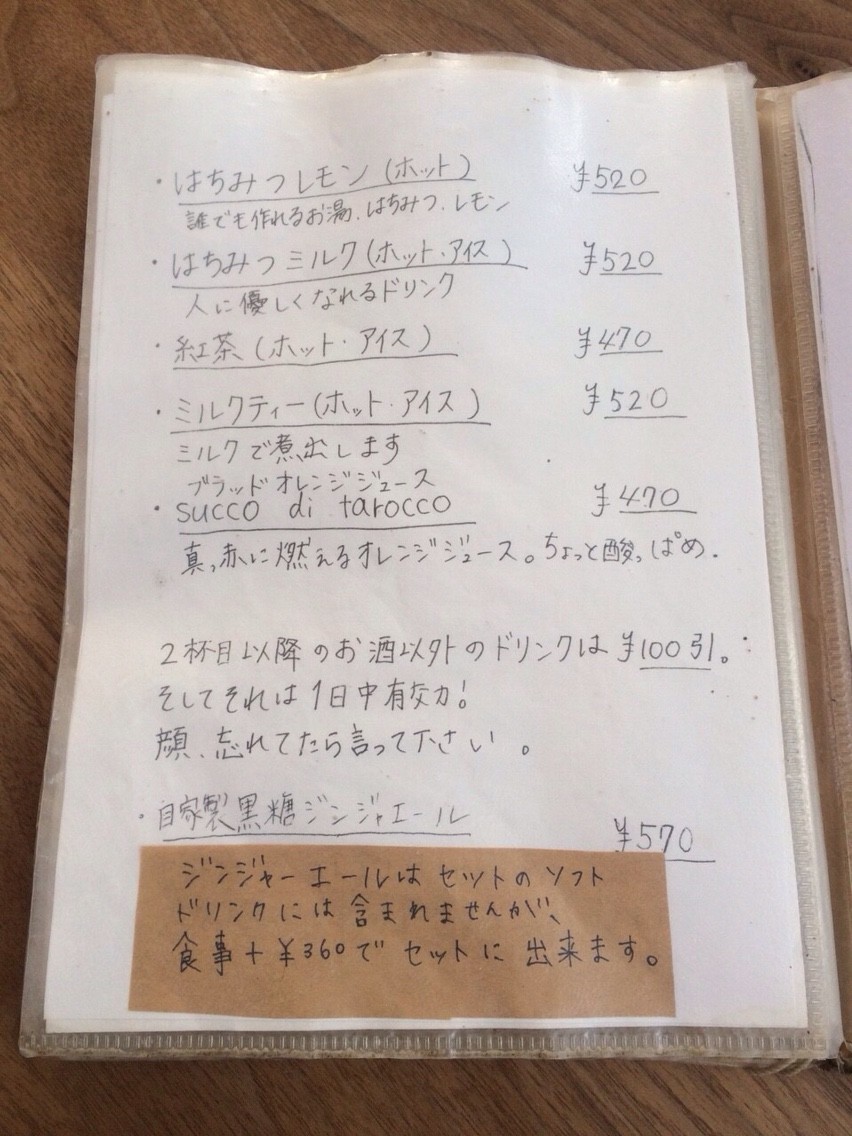 ・はちみつレモン(ホット) ¥520
誰でも作れるお湯、はちみつ、レモン
・はちみつミルク(ホット・アイス) ¥520
人に優しくなれるドリンク
・紅茶(ホット・アイス) ¥470
・ミルクティー(ホット・アイス) ¥520
ミルクで煮出します
ブラッドオレンジジュース
・succo di tarocco ¥470
真っ赤に燃えるオレンジジュース。ちょっと酸っぱめ.
2杯目以降のお酒以外のドリンクは¥100引。
そしてそれは1日中有効!
顔、忘れてたら言って下さい。
・自家製黒糖ジンジャエール ¥570
ジンジャーエールはセットのソフト
ドリンクには含まれませんが、
食事+¥360でセットに出来ます。